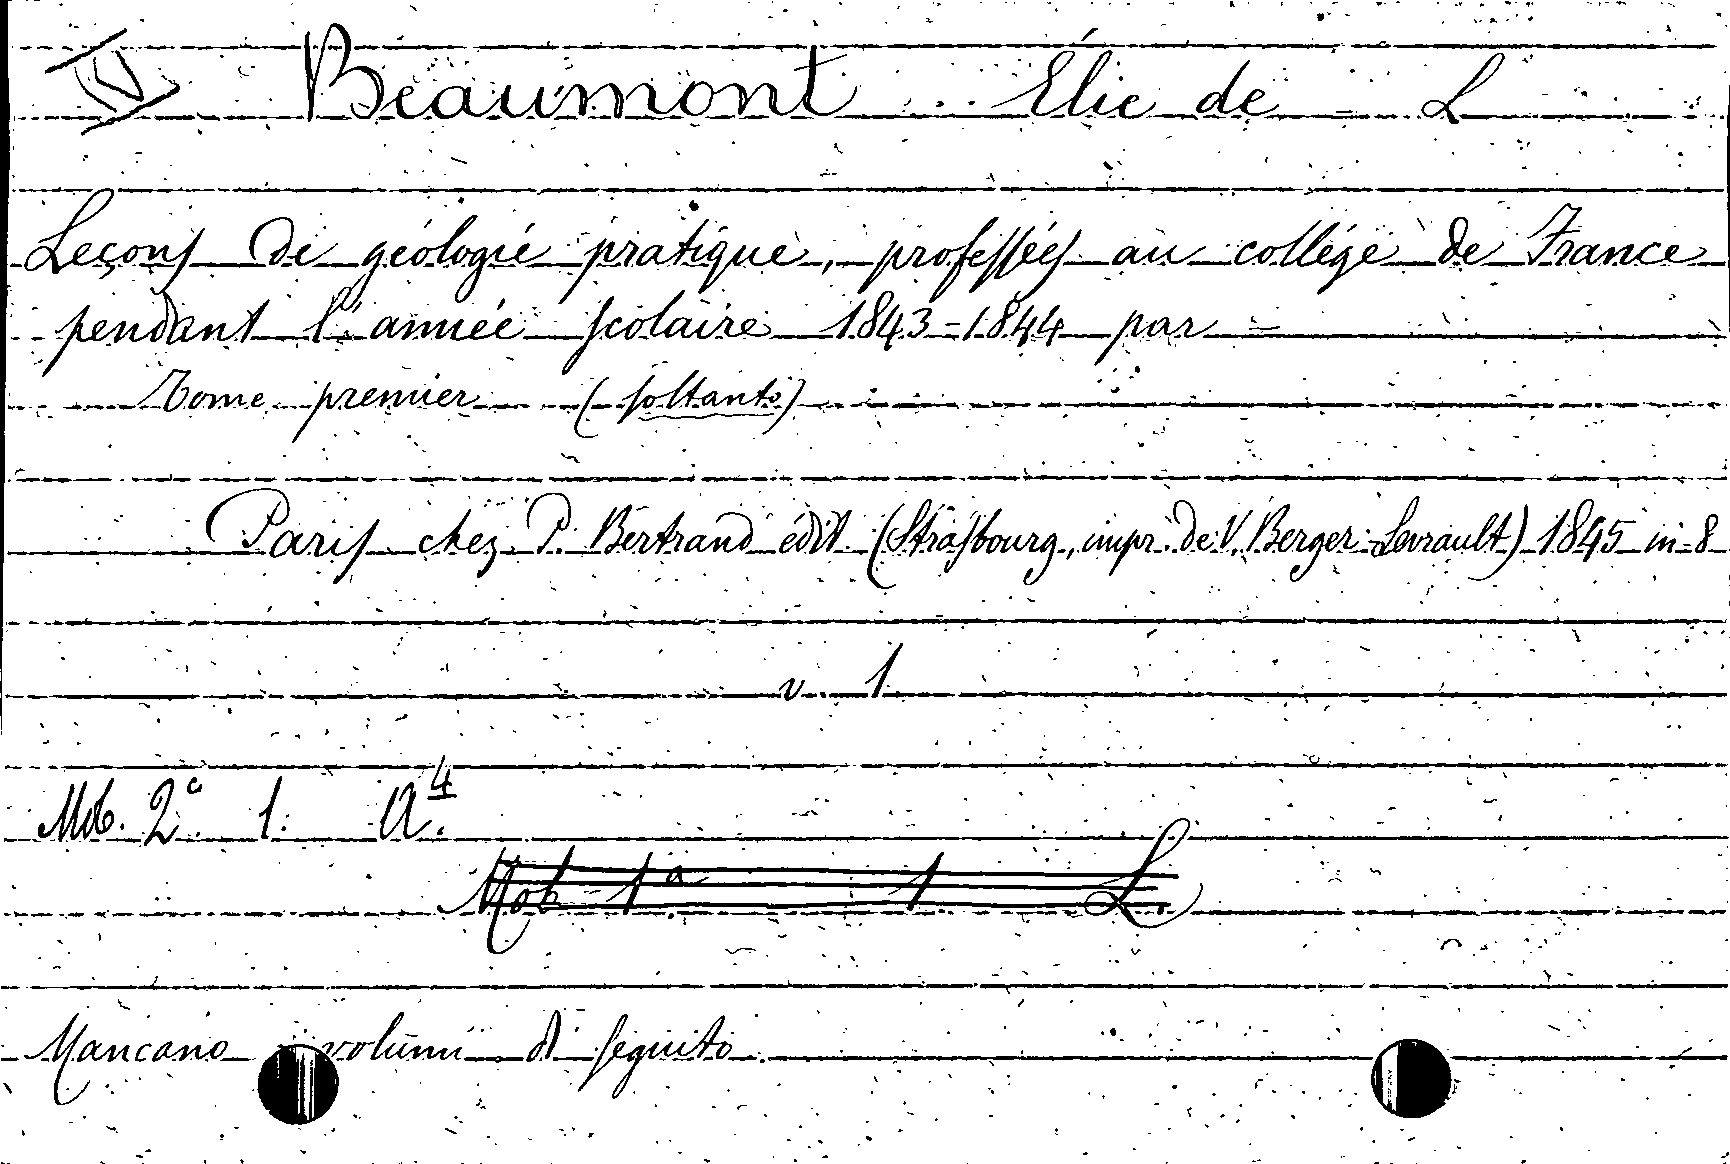 IV Beaumont Élie de - L
Leçons de géologie pratique, professées au collége de France
pendant l'année scolaire 1843-1844 par -
Tome premier (soltanto)
Paris chez P. Bertrand édit (Strasbourg, impr. de V. Berger-Levrault) 1845 in-8
v. 1
Mob. 2ª. 1. A.4
Mob 1ª 1 L.
Mancano volumi di seguito